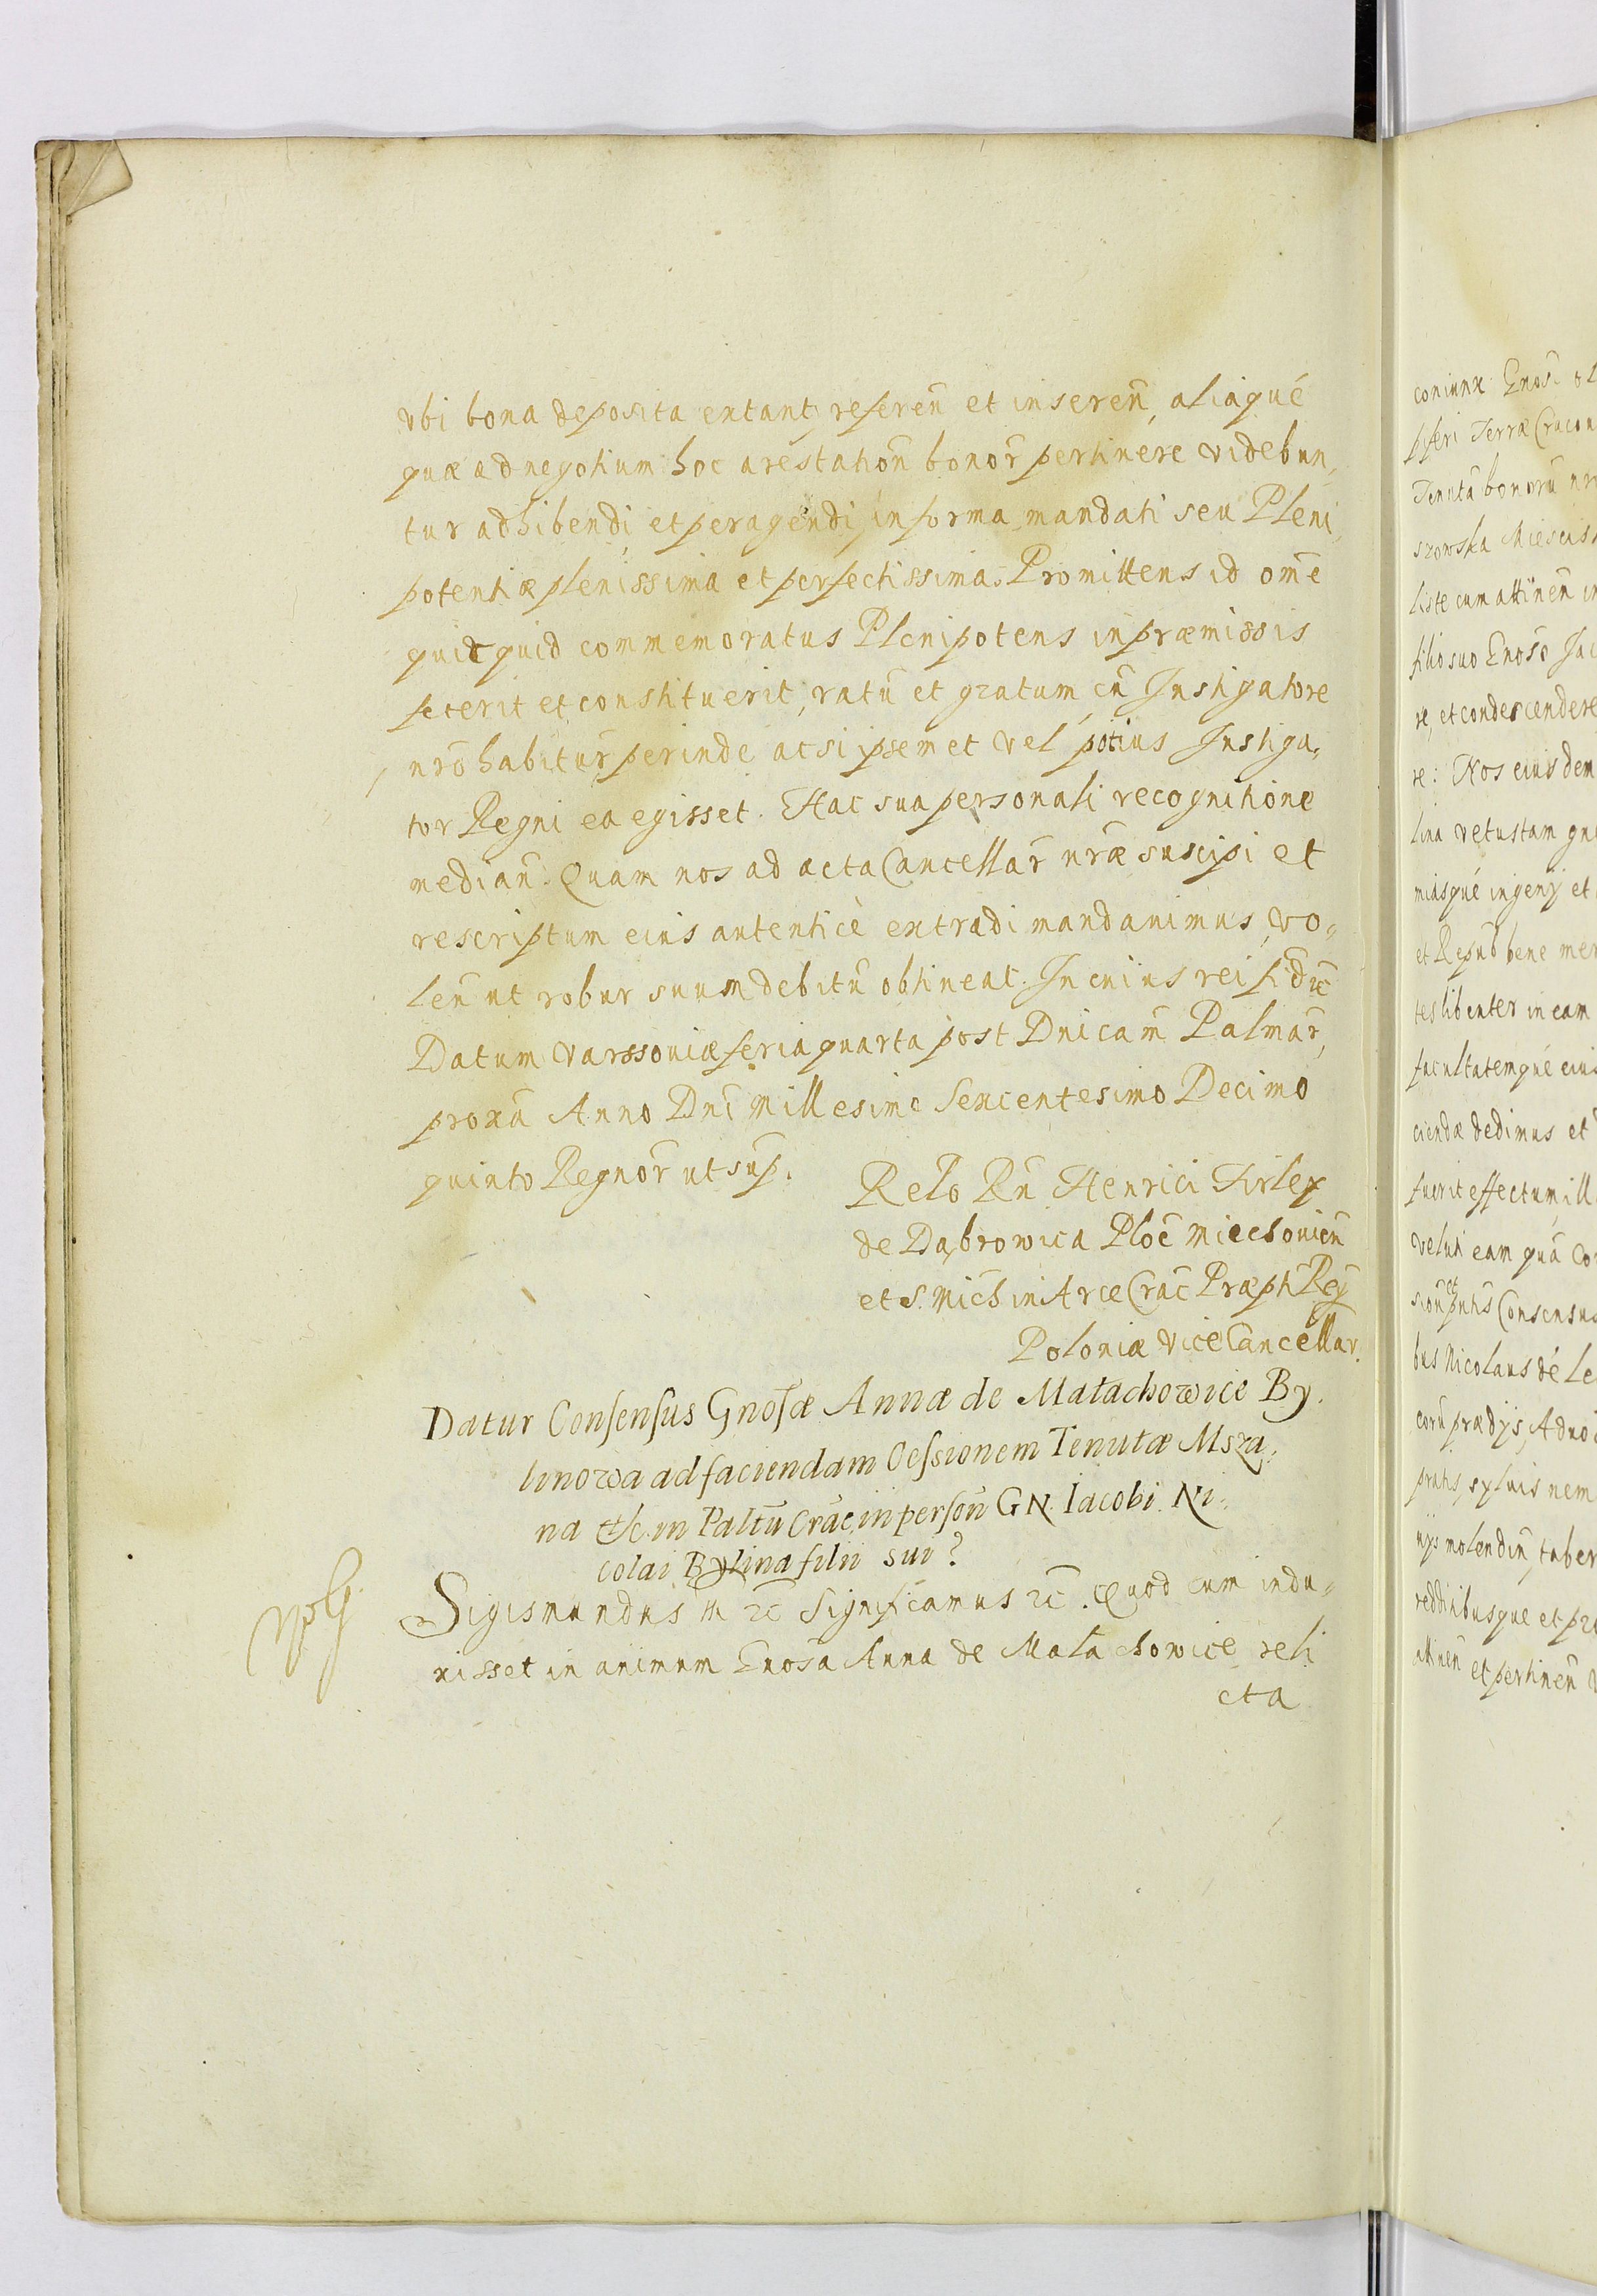 vbi bona deposita extant, referen̄ et inseren̄, aliaqué
quæ ad negotium hoc arestation̄ bonor̄ pertinére videbun,
tur adhibendi et peragéndi, in forma mandati seu Pleni,
potentiæ plenissima et perfectissima. Promittens id om̄e
quicquid commemoratus Plenipotens in præmissis
fecerit et constituerit, ratū et gratum cū Instigatore
nrō habitur̄ perinde ac si ipsemet vel potius Instiga,
tor Regni ea egisset. Hac sua personali recognitione
median̄. Quam nos ad acta Cancellar̄ nr̄æ suscipi et
rescriptum eius autenticè extradi mandauimus, vo,
len̄ ut robur suum debitū obtineat. In cuius rei fid̄ ꝛc̄
Datum Varssouiæ feria quarta post Dnīcam̄ Palmar̄,
proxā Anno Dnī Millesimo Sexcentesimo Decimo
quinto Regnor̄ ut sup̄.
Relō Rn̄ Henrici Firlex
de Dąbrowica Ploc̄ Miechouien̄
et S. Mich̄ in Arce Crac̄ Præpti Regn̄
Poloniæ ViceCancellar̄.
Datur Consensus Gnosæ Annæ de Małachowice By,
linowa ad faciendam Cessionem Tenutæ Msza,
na etc. in Paltū Crac̄, in person̄ GN. Iacobi Ni,
colai Bylina filii sui?
Sigismundus III ꝛc̄ Significamus ꝛc̄. Quod cum indu,
xisset in animum Gnosa Anna de Małachowice reli
cta
coniunx Gnosi
piferi Terræ Cracou
Tenutā bonorū nr
szowska Miescis
liste cum attinen̄ in
filio suo Gnoso Jac
re, et condescendere
re: Nos eiusdem
lina vetustam gn
miasqué ingenij et
et Repub bene mer
tes libenter in eam
facultatemqué eius
ciendæ dedimus et
fuerit effectum ill
veluti eam quā Co
Consensus
bus Nicolaus dé Le
corū prædijs, Aduo
pratis, syluis nem
ijs molendin̄, taber
redditibusque et pro
attinen̄ et pertinen̄